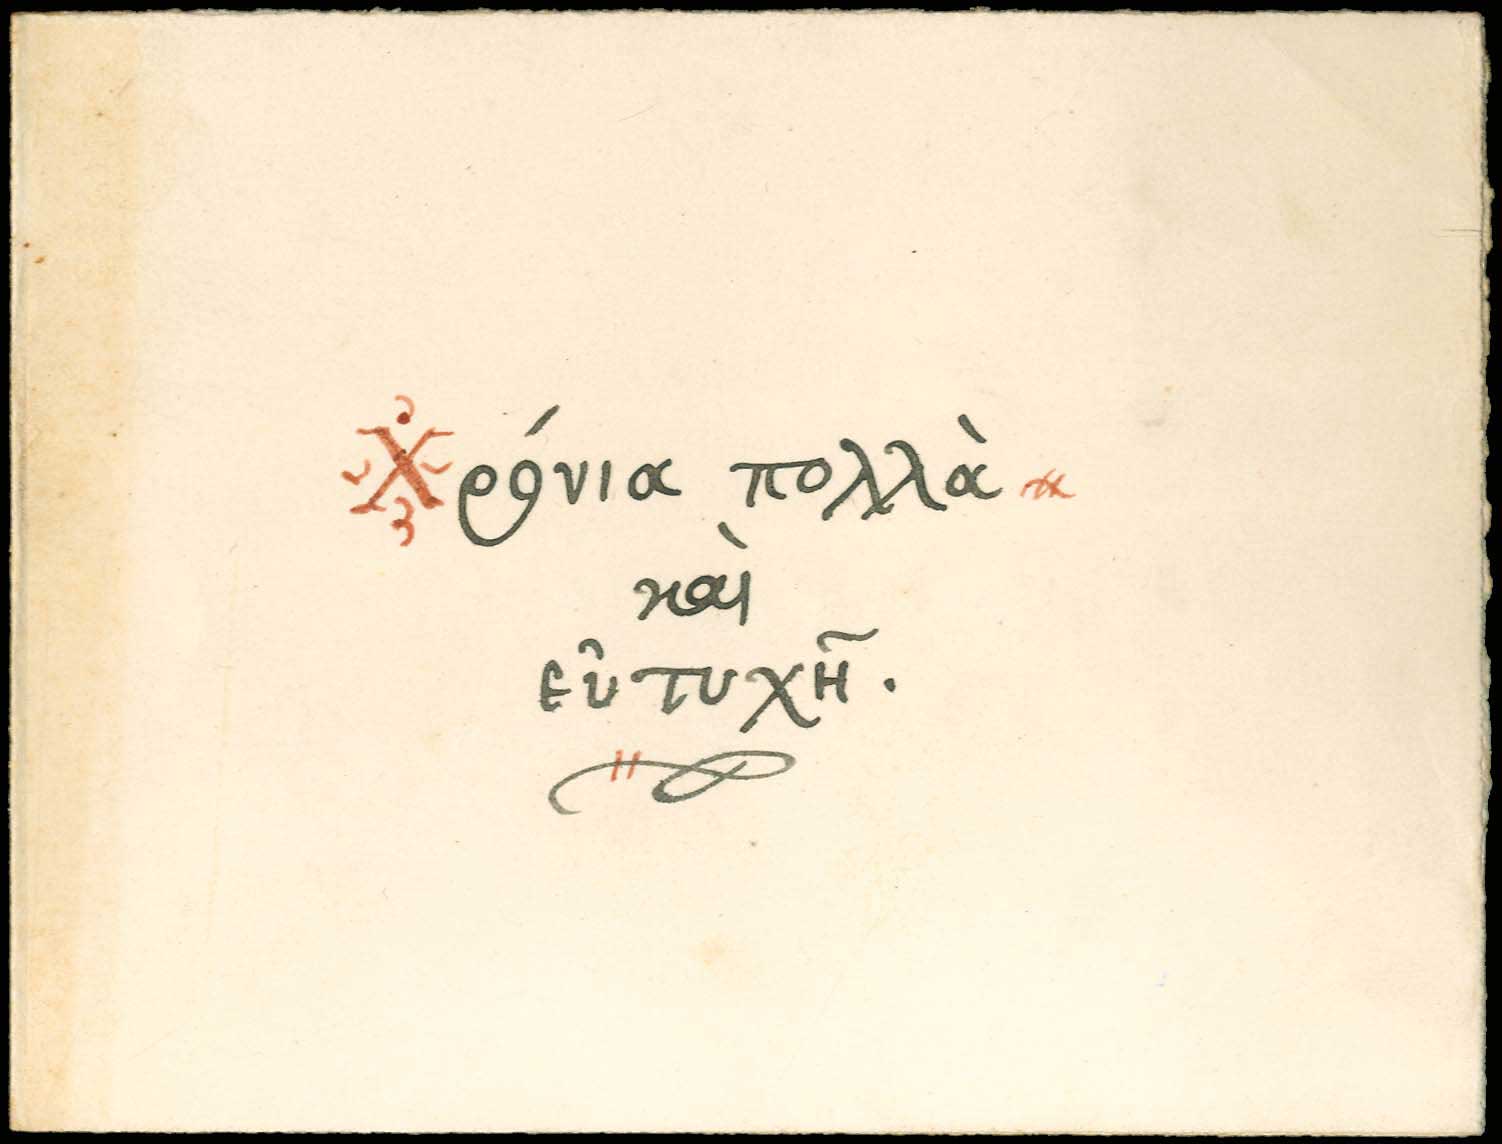 Χρόνια πολλὰ
καὶ
εὐτυχῆ.